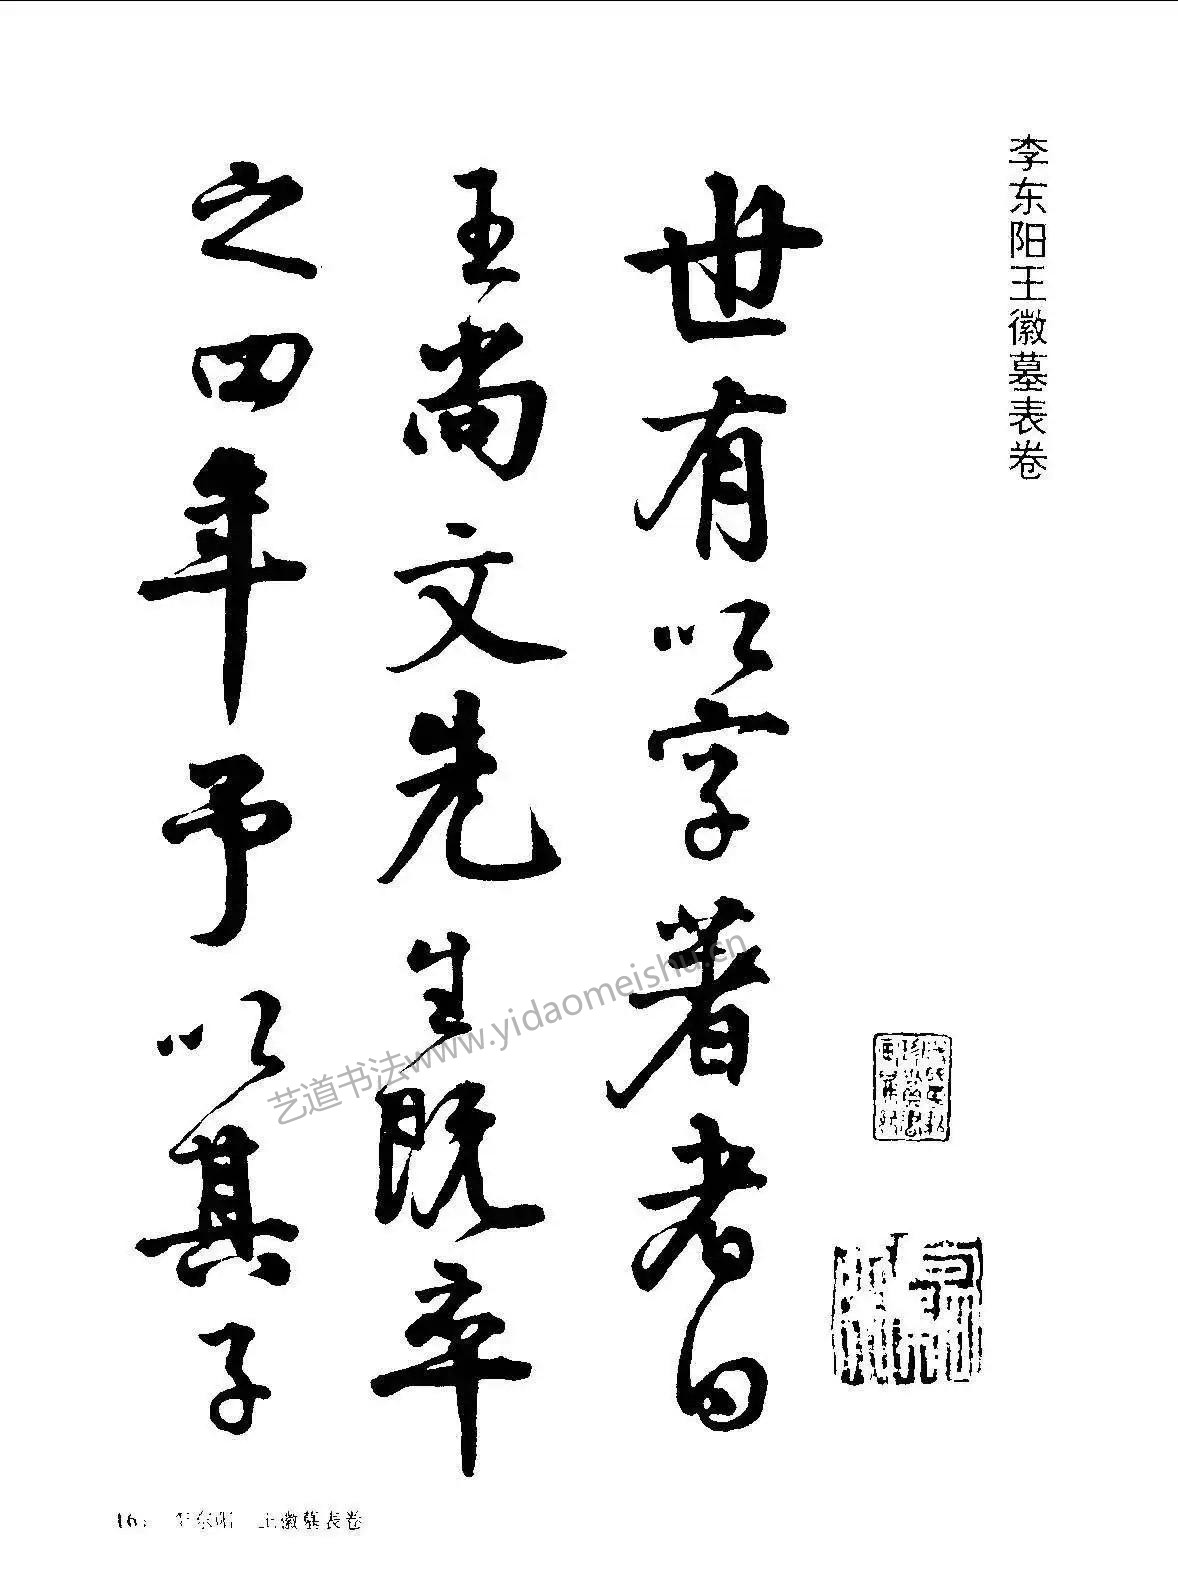 李东阳王徽墓表卷
世有以字著者曰
王尚文先生既卒
之四年予以其子
艺道书法www.yidaomeishu.cn
16 李东阳 王徽墓表卷